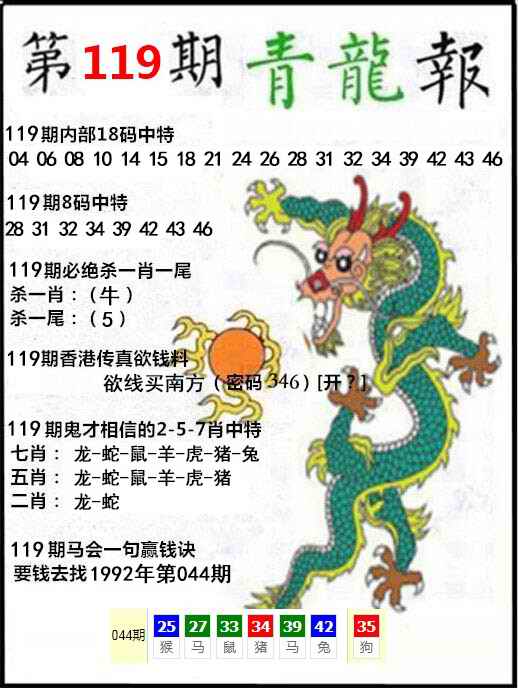 第119期青龍報
119期内部18码中特
04 06 08 10 14 15 18 21 24 26 28 31 32 34 39 42 43 46
119期8码中特
28 31 32 34 39 42 43 46
119期必绝杀一肖一尾
杀一肖：（牛）
杀一尾：（5）
119期香港传真欲钱料
欲线买南方（密码346）[开？]
119期鬼才相信的2-5-7肖中特
七肖： 龙-蛇-鼠-羊-虎-猪-兔
五肖： 龙-蛇-鼠-羊-虎-猪
二肖： 龙-蛇
119期马会一句赢钱诀
要钱去找1992年第044期
044期 25 27 33 34 39 42 35
猴 马 鼠 猪 马 兔 狗